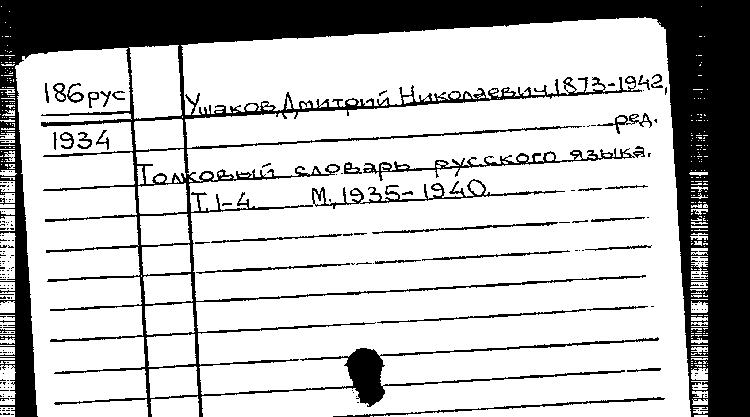 186рус
Ушаков, Дмитрий Николаевич, 1873-1942,
1934
ред.
Толковый словарь русского языка.
Т. 1-4. М., 1935-1940.